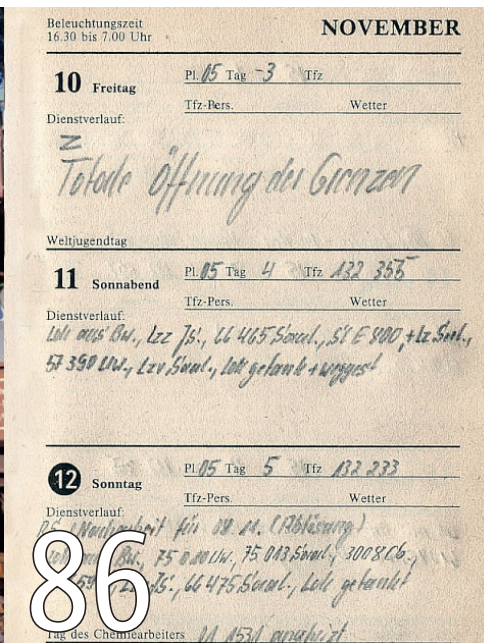 Beleuchtungszeit
16.30 bis 7.00 Uhr
NOVEMBER
10 Freitag
Pl. 05 Tag -3 Tfz
Tfz-Pers. Wetter
Dienstverlauf:
Z
Totale Öffnung der Grenzen
Weltjugendtag
11 Sonnabend
Pl. 05 Tag 4 Tfz 132 355
Tfz-Pers. Wetter
Dienstverlauf:
Lok aus Bw., Lzz Js., 66 465 Saal., St E 800, + Lz Saal.,
57 390 UW., Lzv Saal., Lok getankt + wegges
12 Sonntag
Pl. 05 Tag 5 Tfz 132 233
Tfz-Pers. Wetter
Dienstverlauf:
Nacharbeit für 11. (Ablösung)
Bw., 75 UW., 75 013 Saal., 300
Js., 66 475 Saal., Lok getankt
Tag des Chemiearbeiters
86